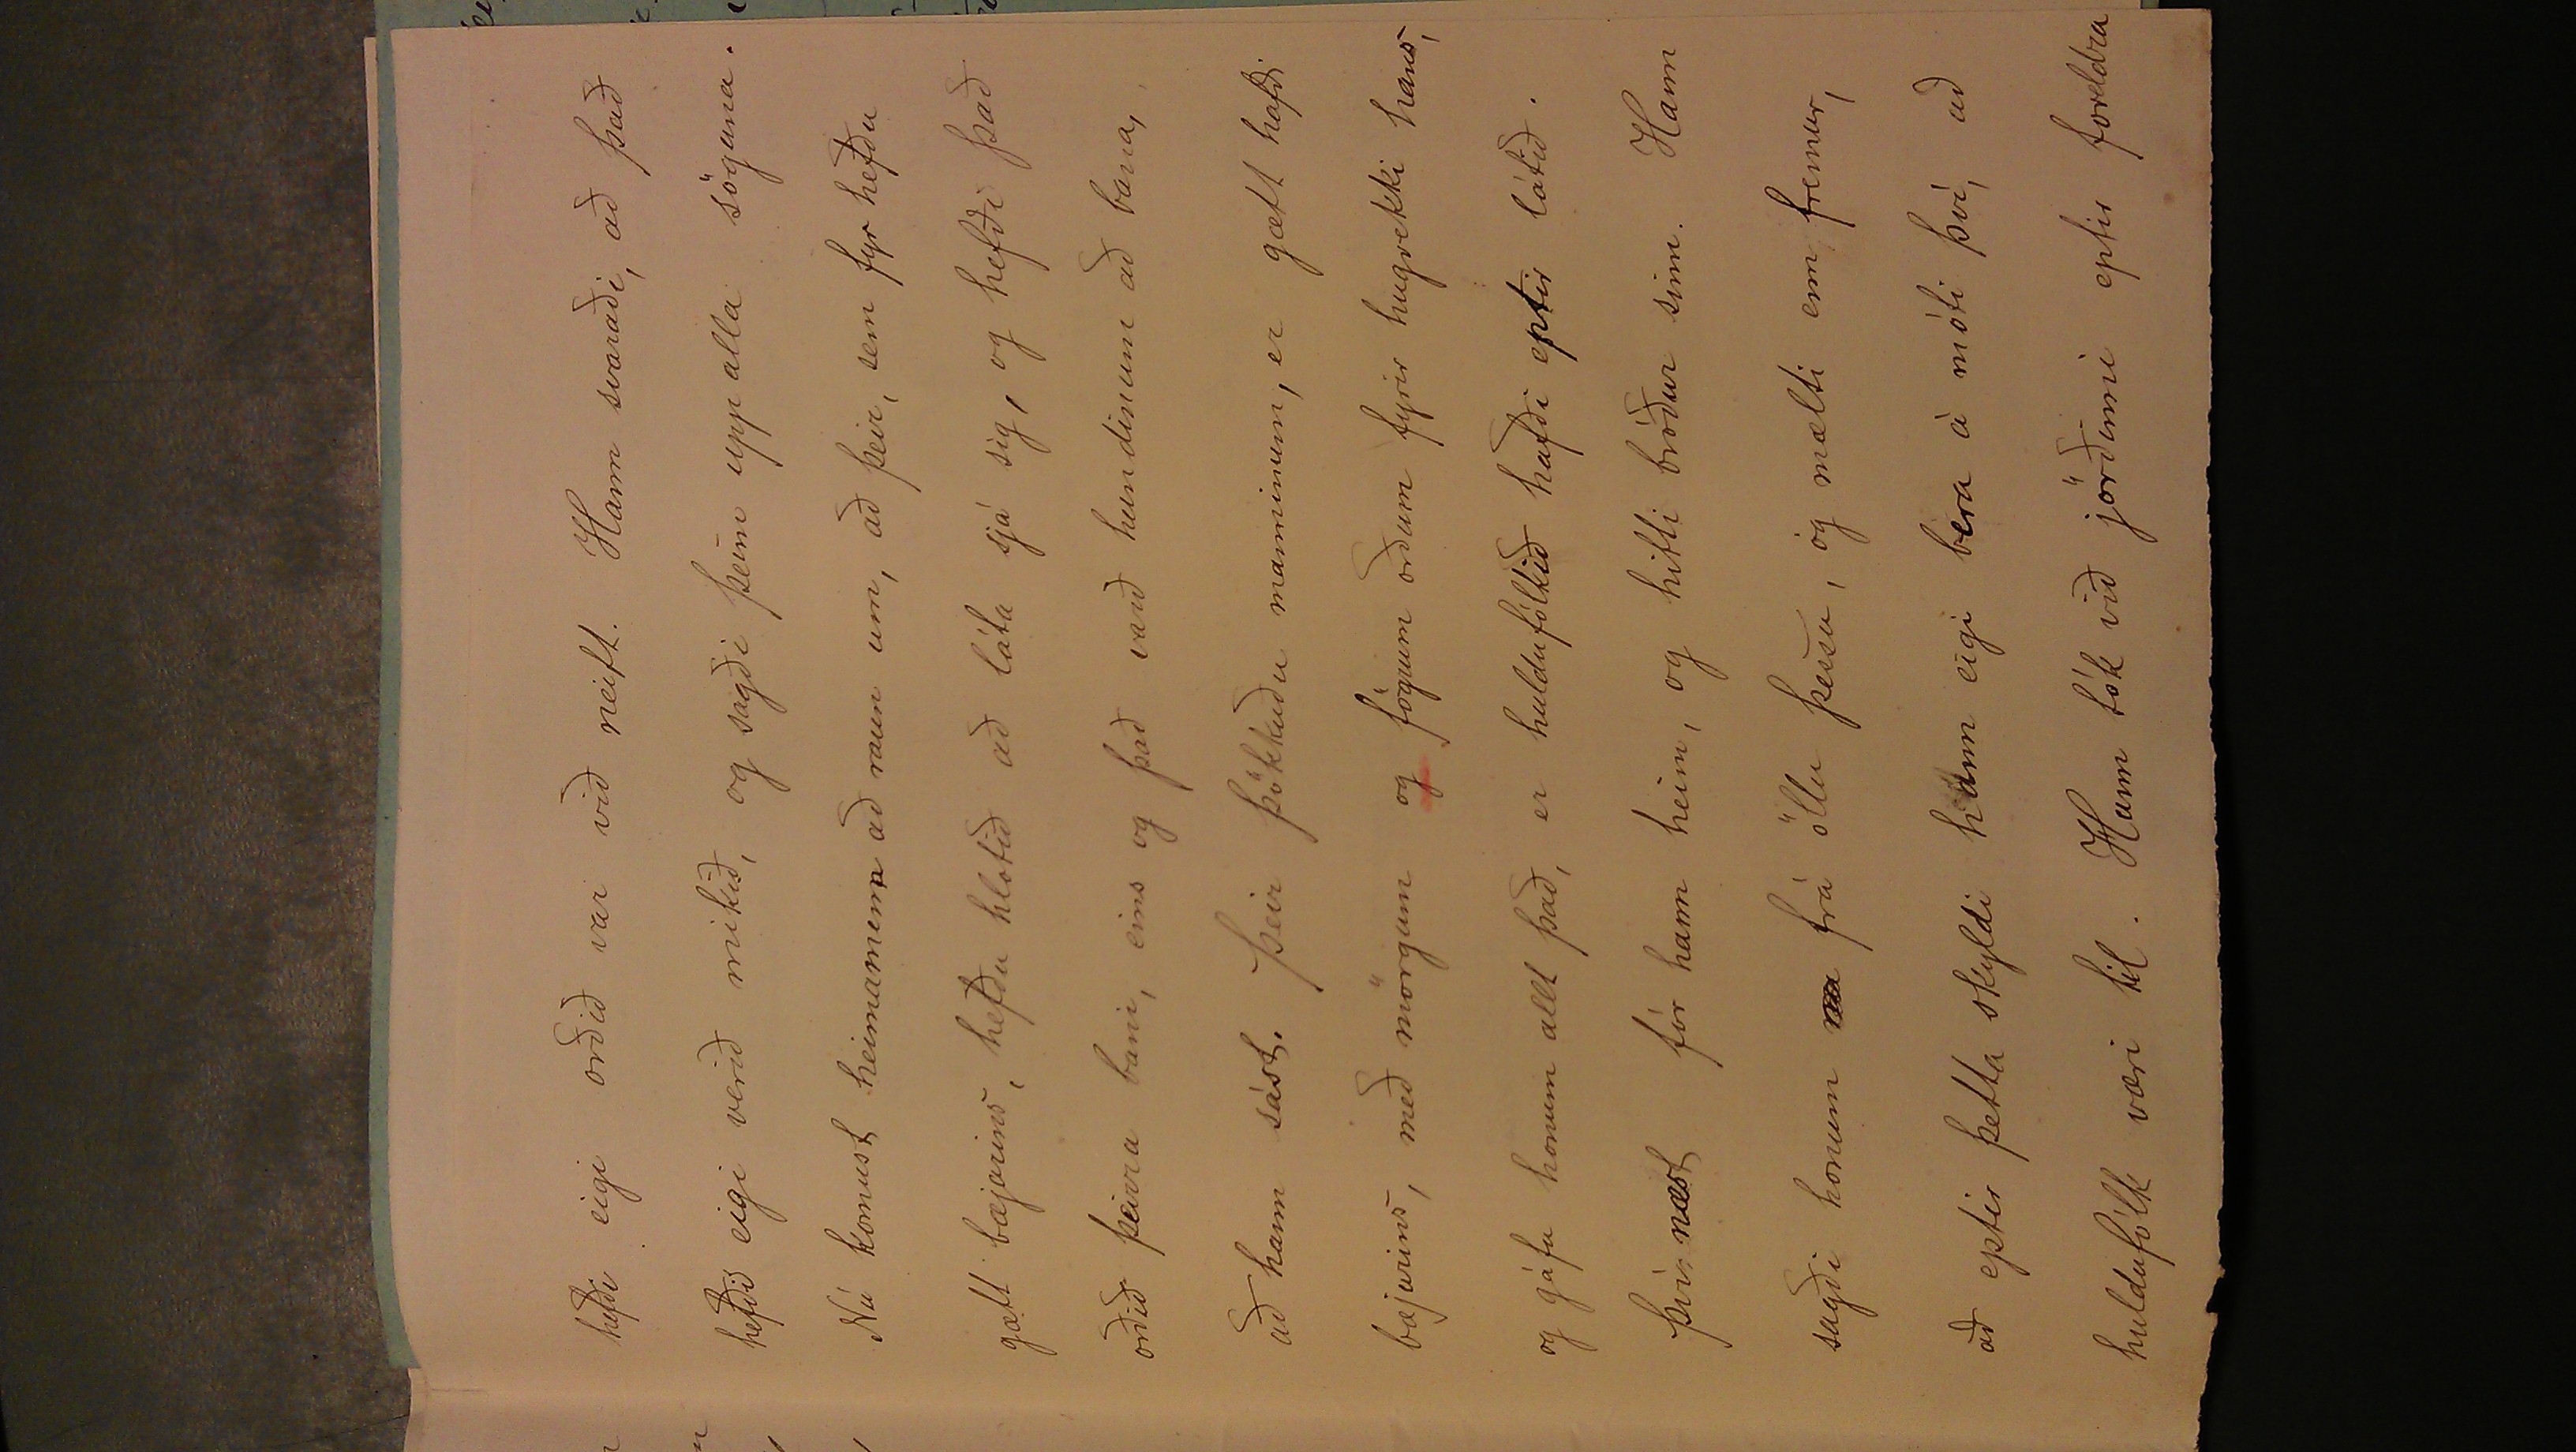 hefði eigi orðið var við neitt. Hann svaraði, að það
hefði eigi verið mikið, og sagði þeim upp alla söguna.
Nú komust heimamenn að raun um, að þeir, sem fyr hefðu
gætt bæjarins, hefðu hlotið að láta sjá sig, og hefði það
orðið þeirra bani, eins og það varð hundinum að bana,
að hann sást. Þeir þökkuðu manninum, er gætt hafði
bæjarins, með mörgum og fögrum orðum fyrir hugrekki hans,
og gáfu honum allt það, er huldufólkið hafði eptir látið.
Því næst fór hann heim, og hitti bróður sinn. Hann
sagði honum frá öllu þessu, og mælti enn fremur,
að eptir þetta skyldi hann eigi bera á móti því, að
huldufólk væri til. Hann tók við jörðinni eptir foreldra